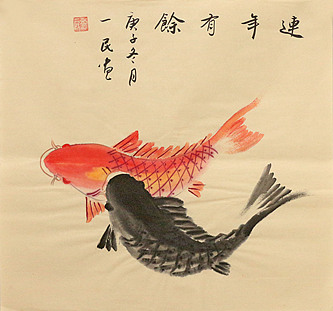 連年有餘
庚子冬月
一民畫